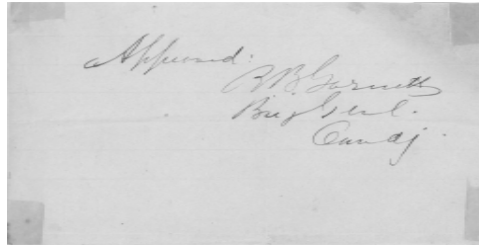 Approved:
R B Garnett
Brig Genl.
Comdg.